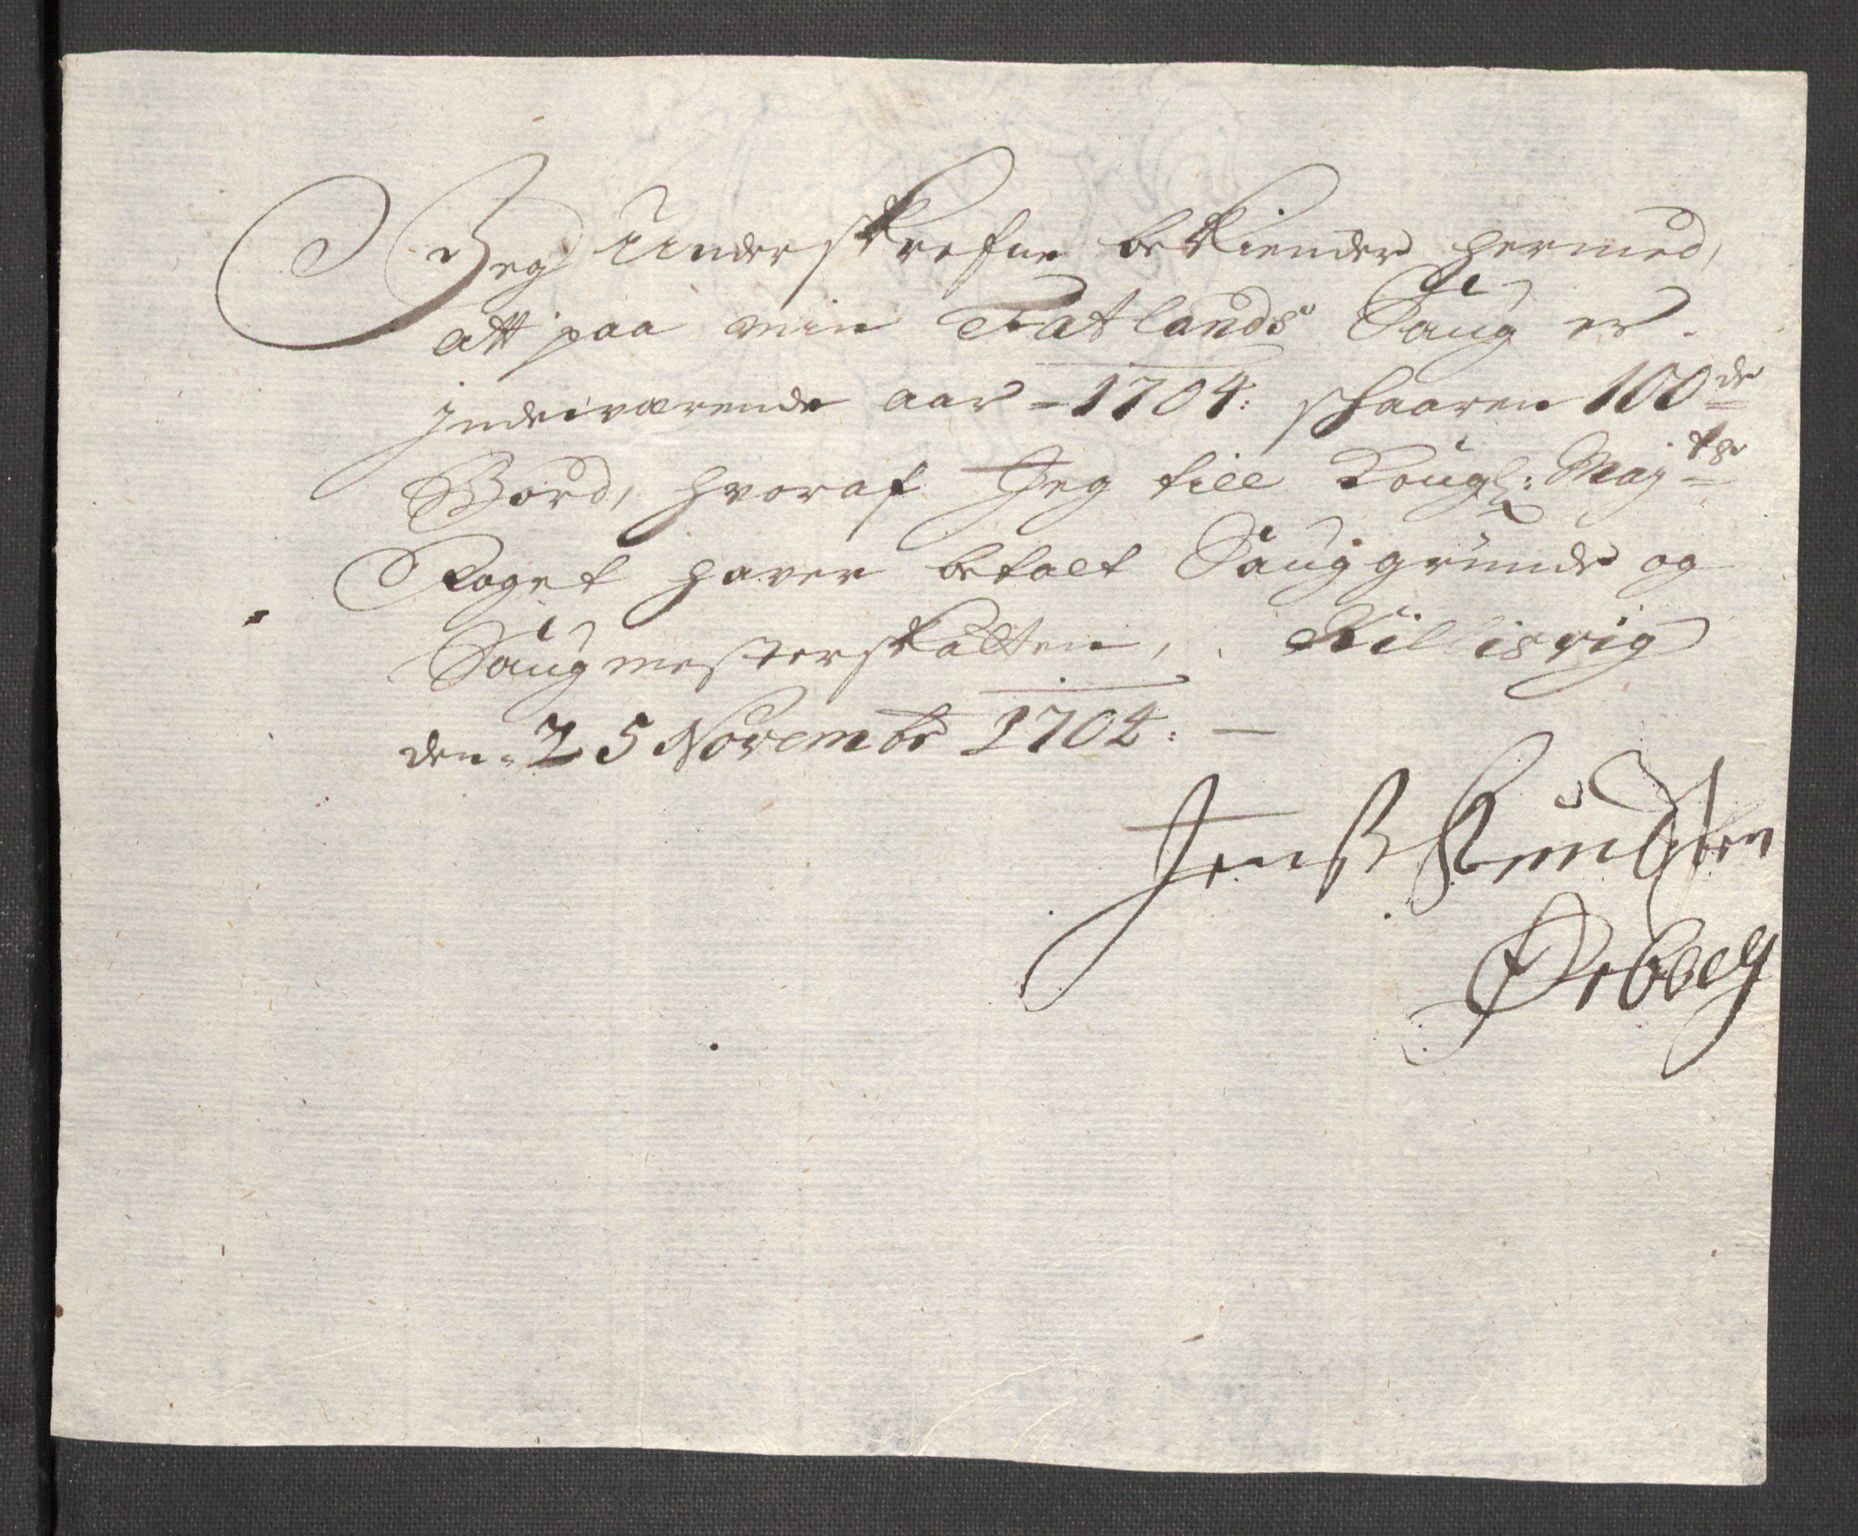 Jeg Underskrefne bekiender hermed,
att paa min Fatlands Saug er
Jndeiværende aar - 1704: schaaren 100de
Bord, hvoraf Jeg till Kongl: Maj:ts
Foget haver betalt Sauggrunde og
Saugmesterskatten, Killisvig
den 25 Novembr 1704: —
Jenß Knudsen